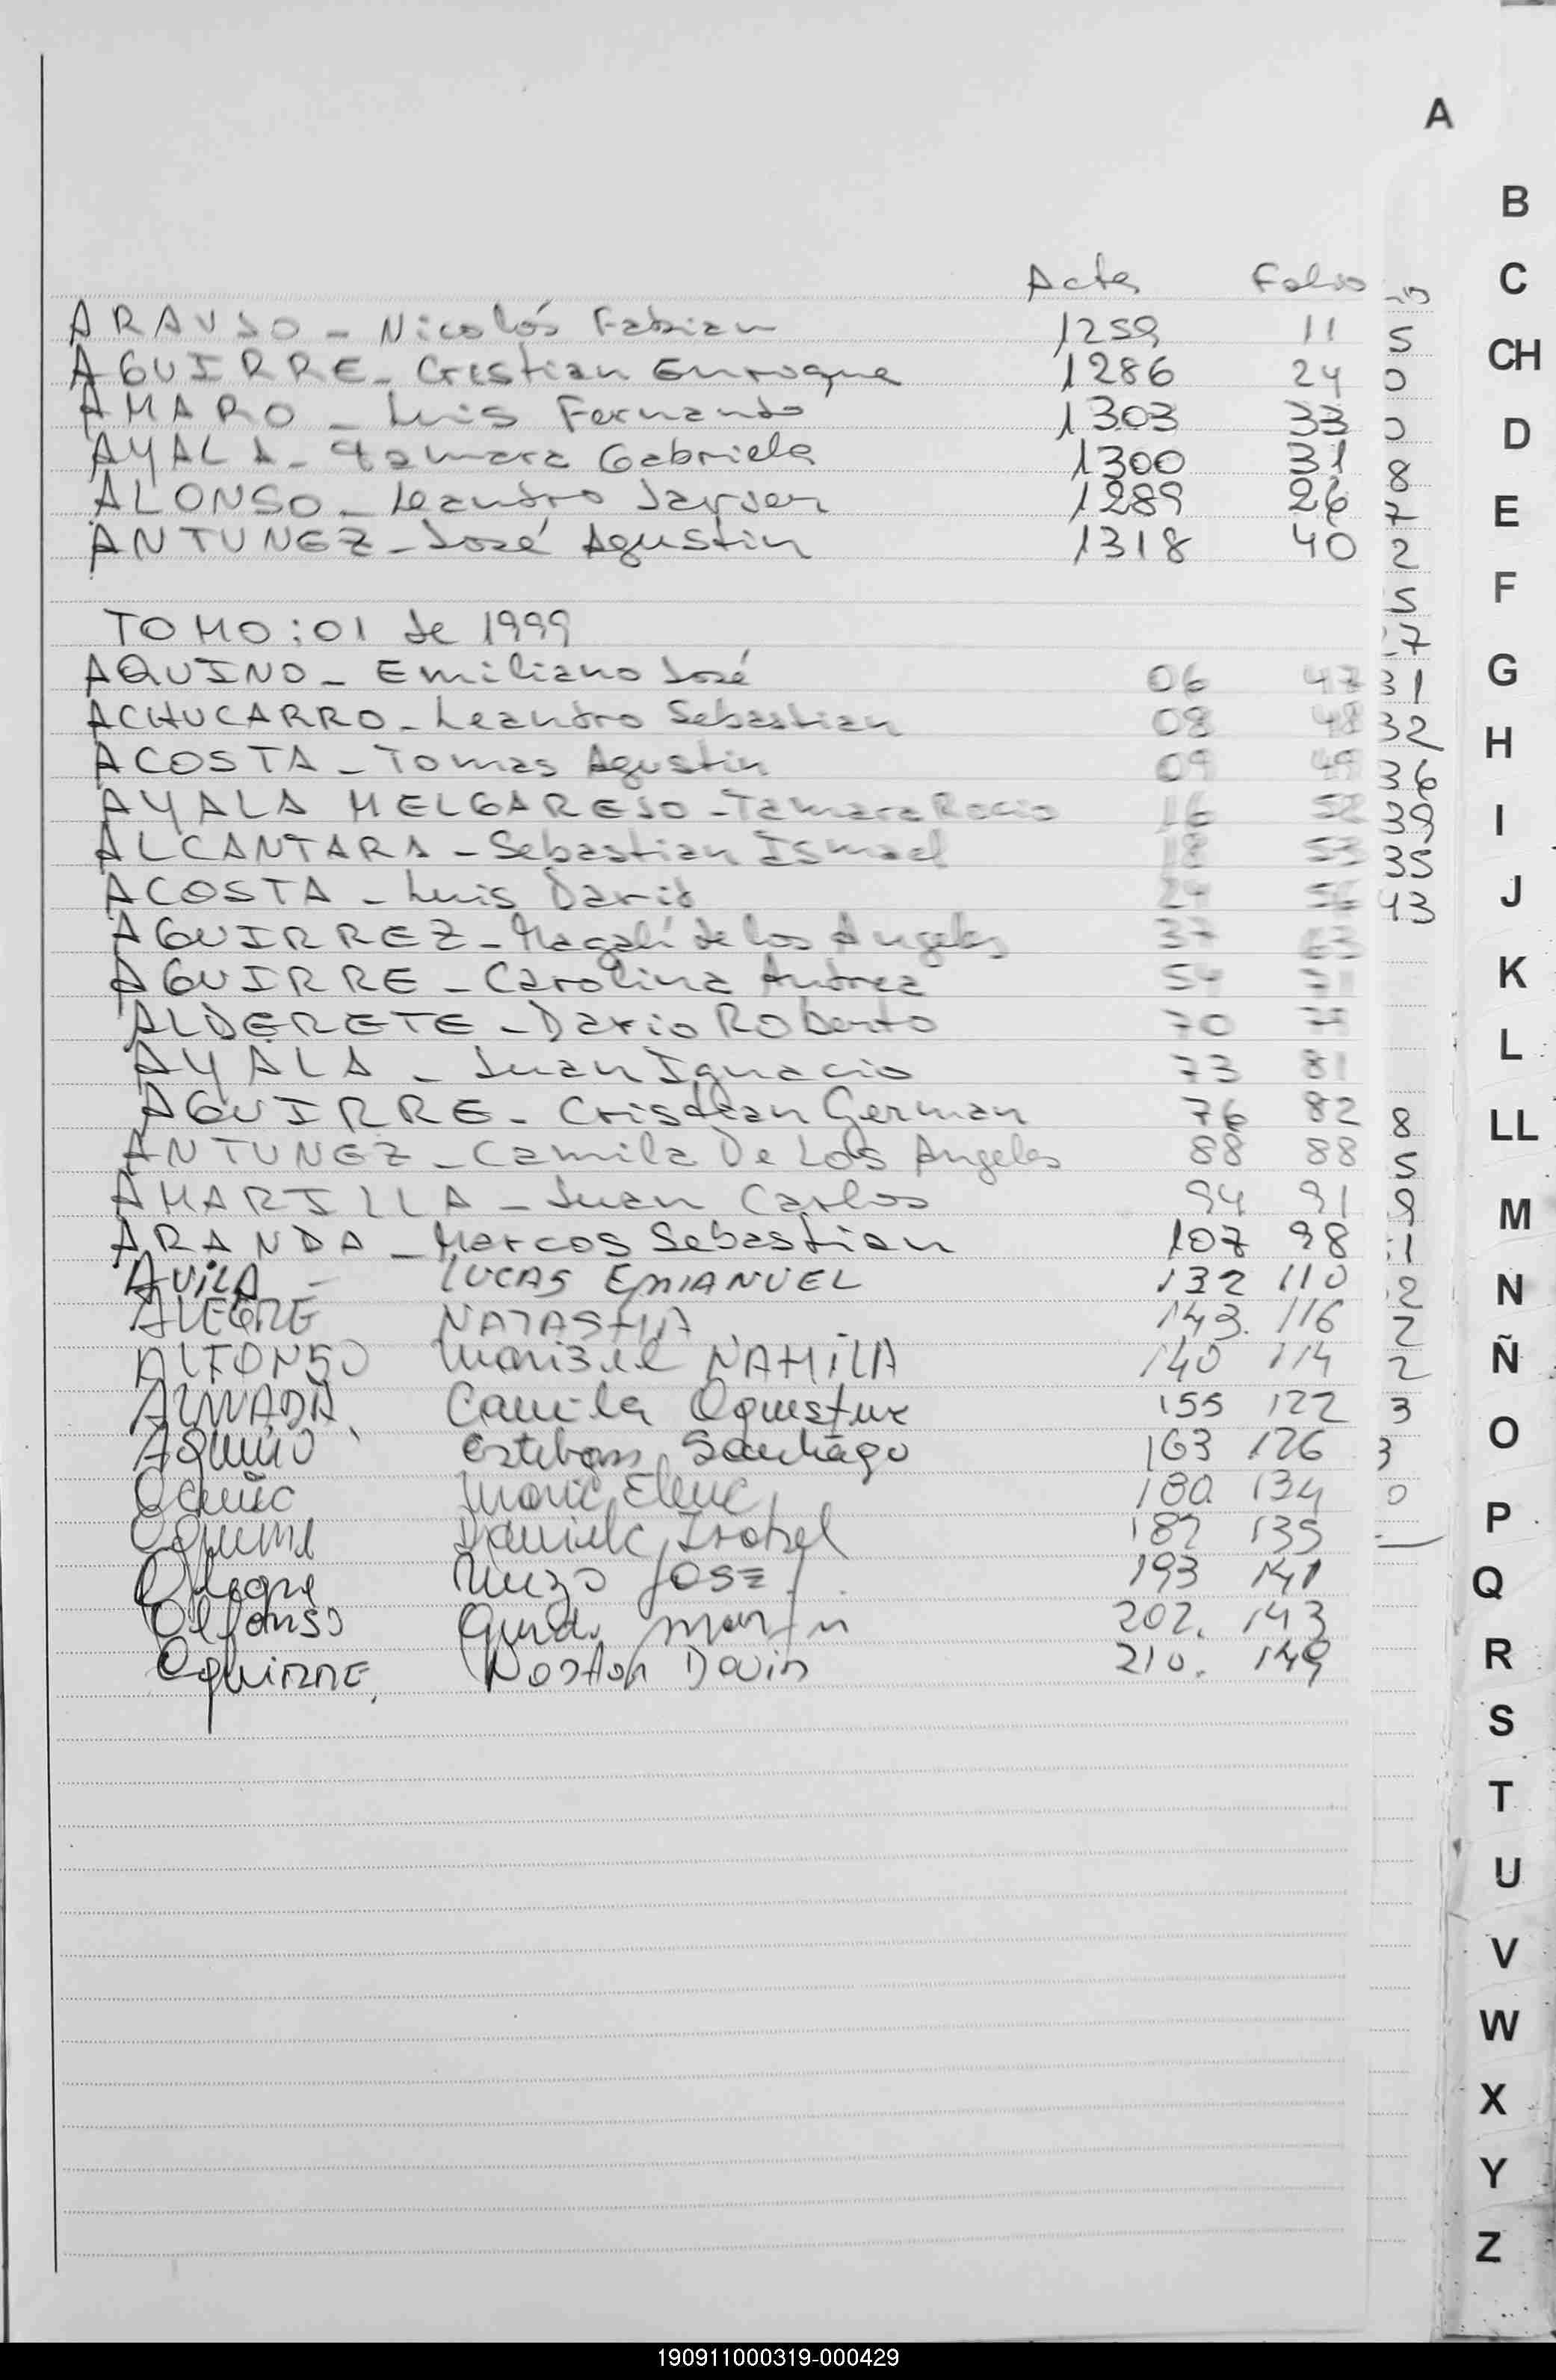 A
Acta Folio
ARAUJO - Nicolás Fabian 1259 11
AGUIRRE - Cristian Enrrique 1286 24
AMARO - Luis Fernando 1303 33
AYALA - Tamara Gabriela 1300 31
ALONSO - Leandro Javier 1289 26
ANTUNEZ - José Agustin 1318 40
TOMO: 01 de 1999
AQUINO - Emiliano José 06 47
ACHUCARRO - Leandro Sebastian 08 48
ACOSTA - Tomas Agustin 09 49
AYALA MELGAREJO - Tamara Rocio 16 52
ALCANTARA - Sebastian Ismael 18 53
ACOSTA - Luis David 24 56
AGUIRREZ - Magalí de los Angeles 37 63
AGUIRRE - Carolina Andrea 54 71
ALDERETE - Dario Roberto 70 79
AYALA - Juan Ignacio 73 81
AGUIRRE - Cristian German 76 82
ANTUNEZ - Camila De Los Angeles 88 88
AMARILLA - Juan Carlos 94 91
ARANDA - Marcos Sebastian 107 98
AVILA - LUCAS EMANUEL 132 110
ALEGRE NATASHA 143. 116
ALFONSO Marisel NAHILA 140 114
ALMADA Camila Agustina 155 122
Aquino Esteban Santiago 163 126
Acuña Maria Elena 180. 134
Daniela Isabel 182 135
Alegre JOSE 193 141
Alfonso Martin 202. 143
AguiRRE, Nestor David 210. 149
5
0
0
8
7
2
5
7
31
32
36
39
35
43
8
5
9
1
2
2
2
3
3
0
B
C
CH
D
E
F
G
H
I
J
K
L
LL
M
N
Ñ
O
P
Q
R
S
T
U
V
W
X
Y
Z
190911000319-000429